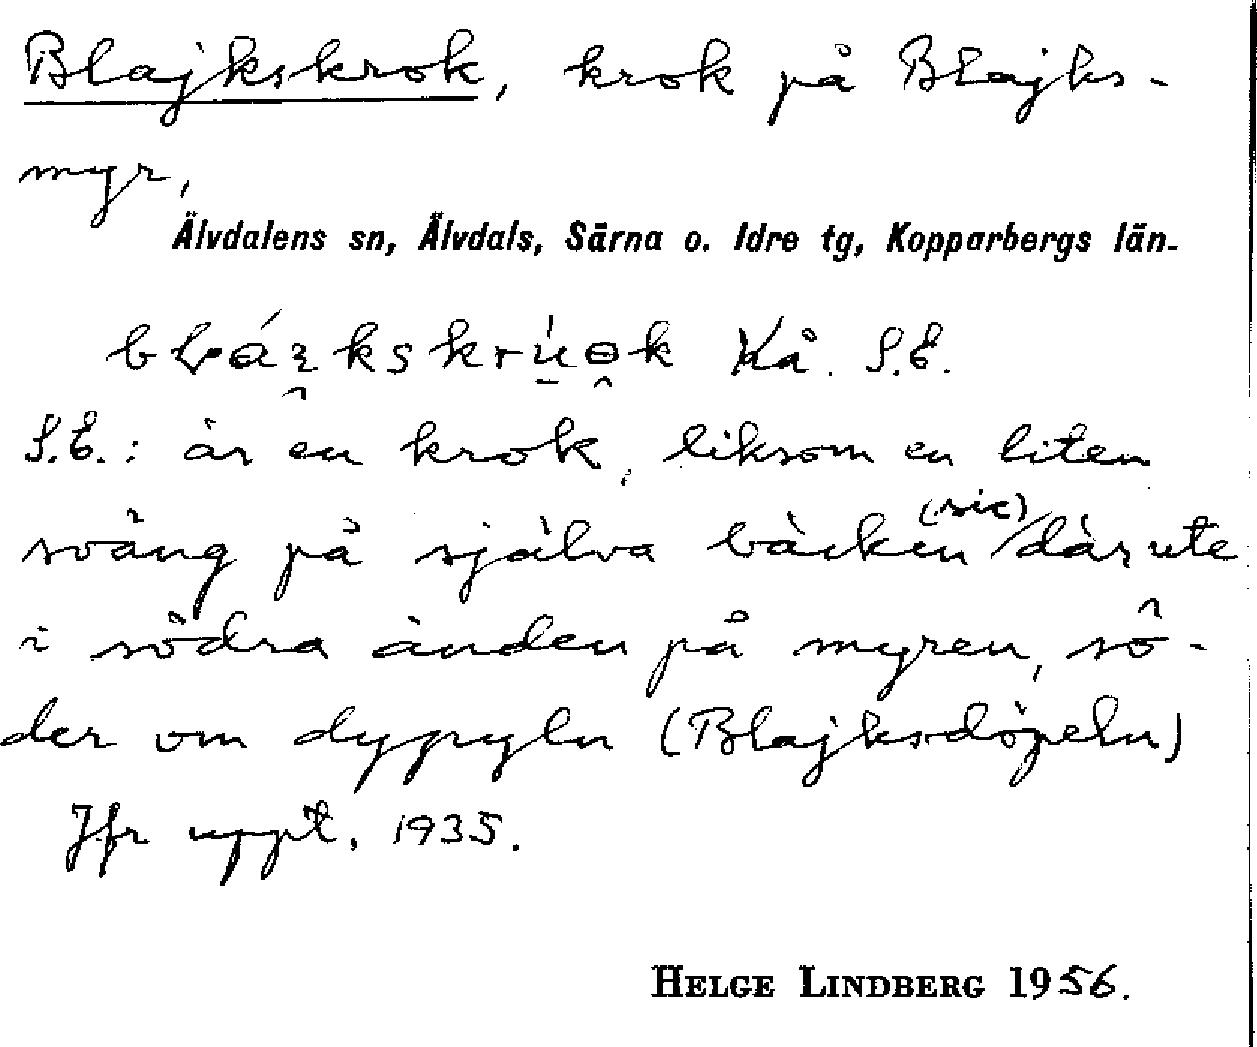 Blajkskrok, krok på Blajks-
myr,
Älvdalens sn, Älvdals, Särna o. Idre tg, Kopparbergs län.
Kå. S.E.
S.E.: är en krok, liksom en liten
sväng på själva bäcken (sic) där ute
i södra änden på myren, sö-
der om dypyln (Blajksdöpeln)
Jfr uppt. 1935.
HELGE LINDBERG 1956.